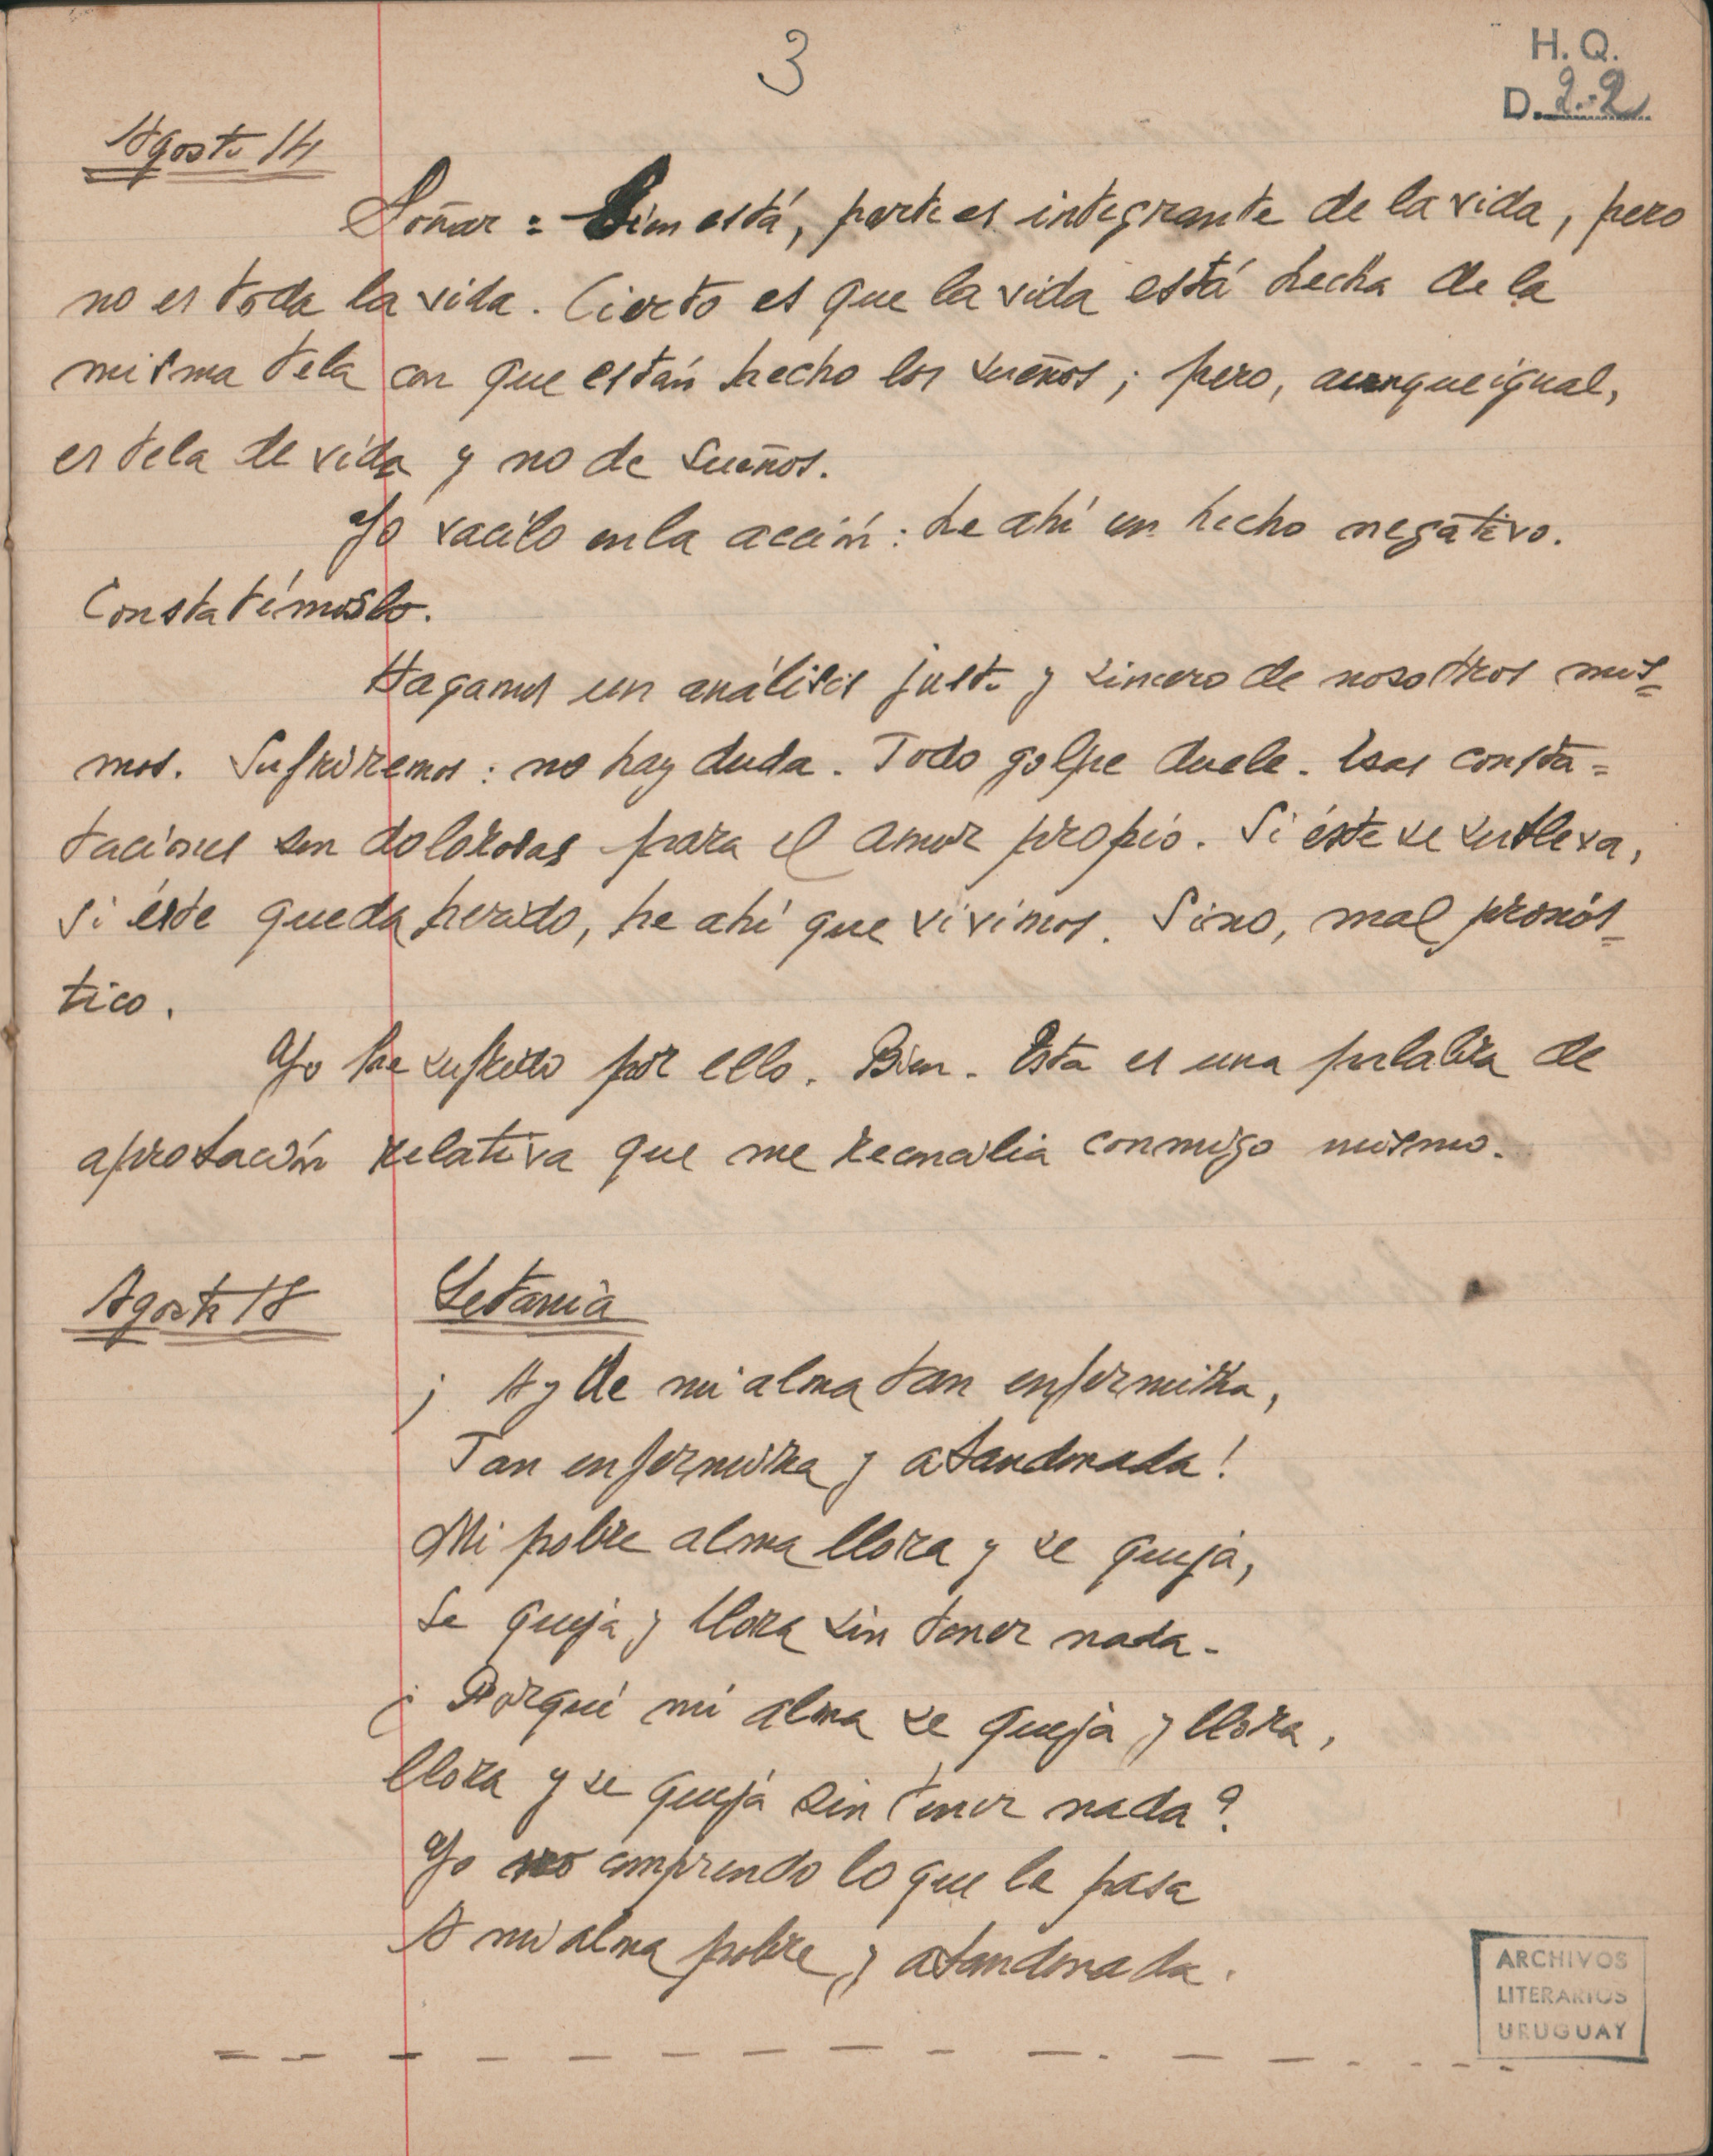 3
H. Q.
D. 2.-2
Agosto 14
Soñar = Bien está, parte es integrante de la vida, pero
no es toda la vida. Cierto es que la vida está hecha de la
misma tela con que están hecho los sueños; pero, aunque igual,
es tela de vida y no de sueños.
Yo vacilo en la acción: he ahí un hecho negativo.
Constatémoslo.
Hagamos un análisis justo y sincero de nosotros mis=
mos. Sufriremos: no hay duda. Todo golpe duele. Esas consta=
taciones son dolorosas para el amor propio. Si éste se subleva,
si éste queda herido, he ahí que vivimos. Sino, mal pronós=
tico.
Yo he sufrido por ello. Bien. Esta es una palabra de
aprobación relativa que me reconcilia conmigo mismo.
Agosto 18
Letania
¡Ay de mi alma tan enfermita,
Tan enfermita y abandonada!
Mi pobre alma llora y se queja,
Se queja y llora sin tener nada.
¿Porqué mi alma se queja y llora,
llora y se queja sin tener nada?
Yo no comprendo lo que le pasa
A mi alma pobre y abandonada.
ARCHIVOS
LITERARIOS
URUGUAY